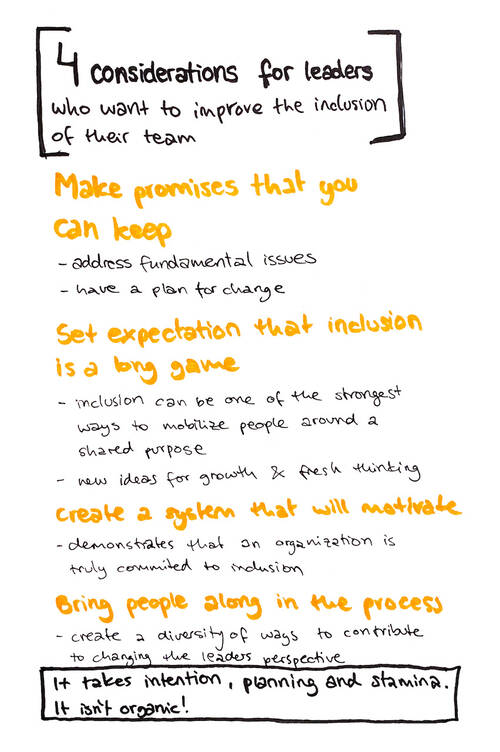 4 considerations for leaders
who want to improve the inclusion
of their team
Make promises that you
can keep
- address fundamental issues
- have a plan for change
Set expectation that inclusion
is a long game
- inclusion can be one of the strongest
ways to mobilize people around a
shared purpose
- new ideas for growth & fresh thinking
Create a system that will motivate
- demonstrates that an organization is
truly commited to inclusion
Bring people along in the process
- create a diversity of ways to contribute
to changing the leaders perspective
It takes intention, planning and stamina.
It isn't organic!